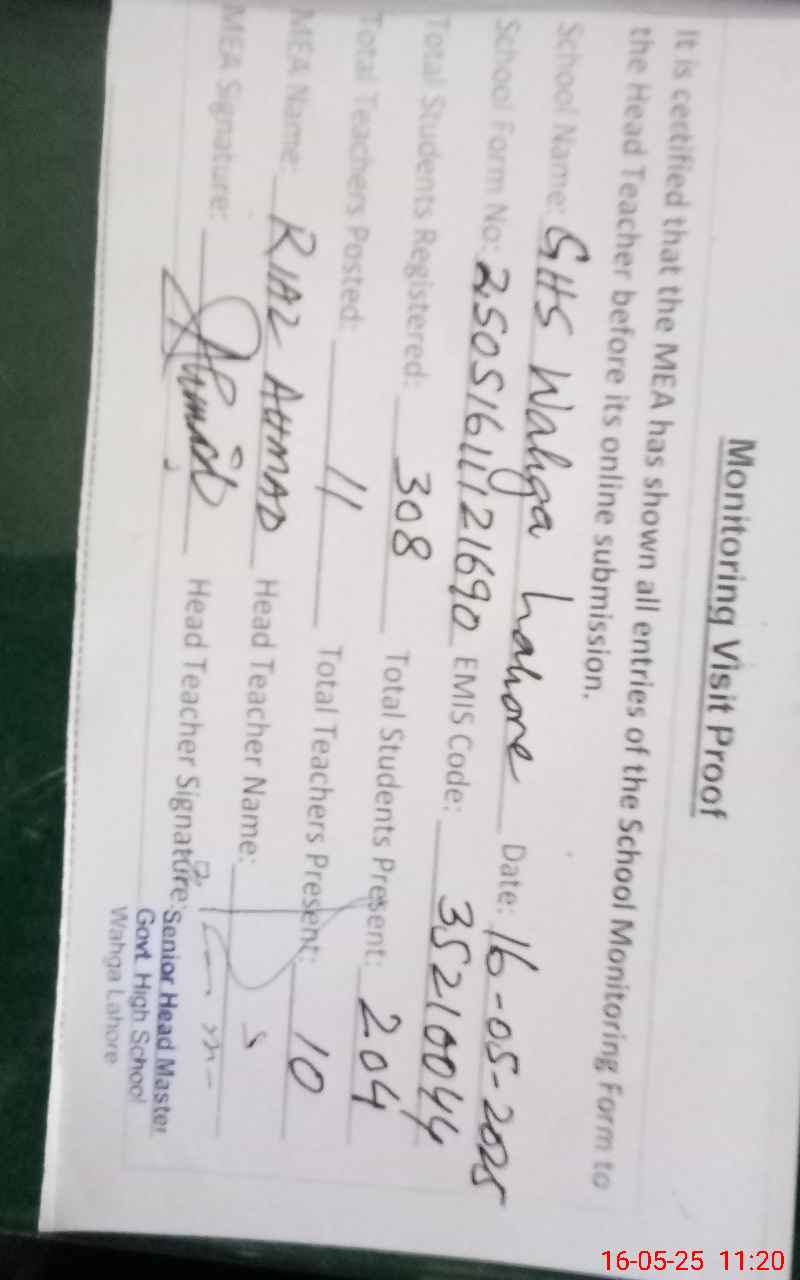 Monitoring Visit Proof
It is certified that the MEA has shown all entries of the School Monitoring Form to
the Head Teacher before its online submission.
School Name: GHS Wahga Lahore Date: 16-05-2025
School Form No: 25051611121690 EMIS Code: 35210044
Total Students Registered: 308 Total Students Present: 204
Total Teachers Posted: 11 Total Teachers Present: 10
MEA Name: RIAZ AHMAD Head Teacher Name:
MEA Signature: Ahmad Head Teacher Signature:
Senior Head Master
Govt. High School
Wahga Lahore
16-05-25 11:20